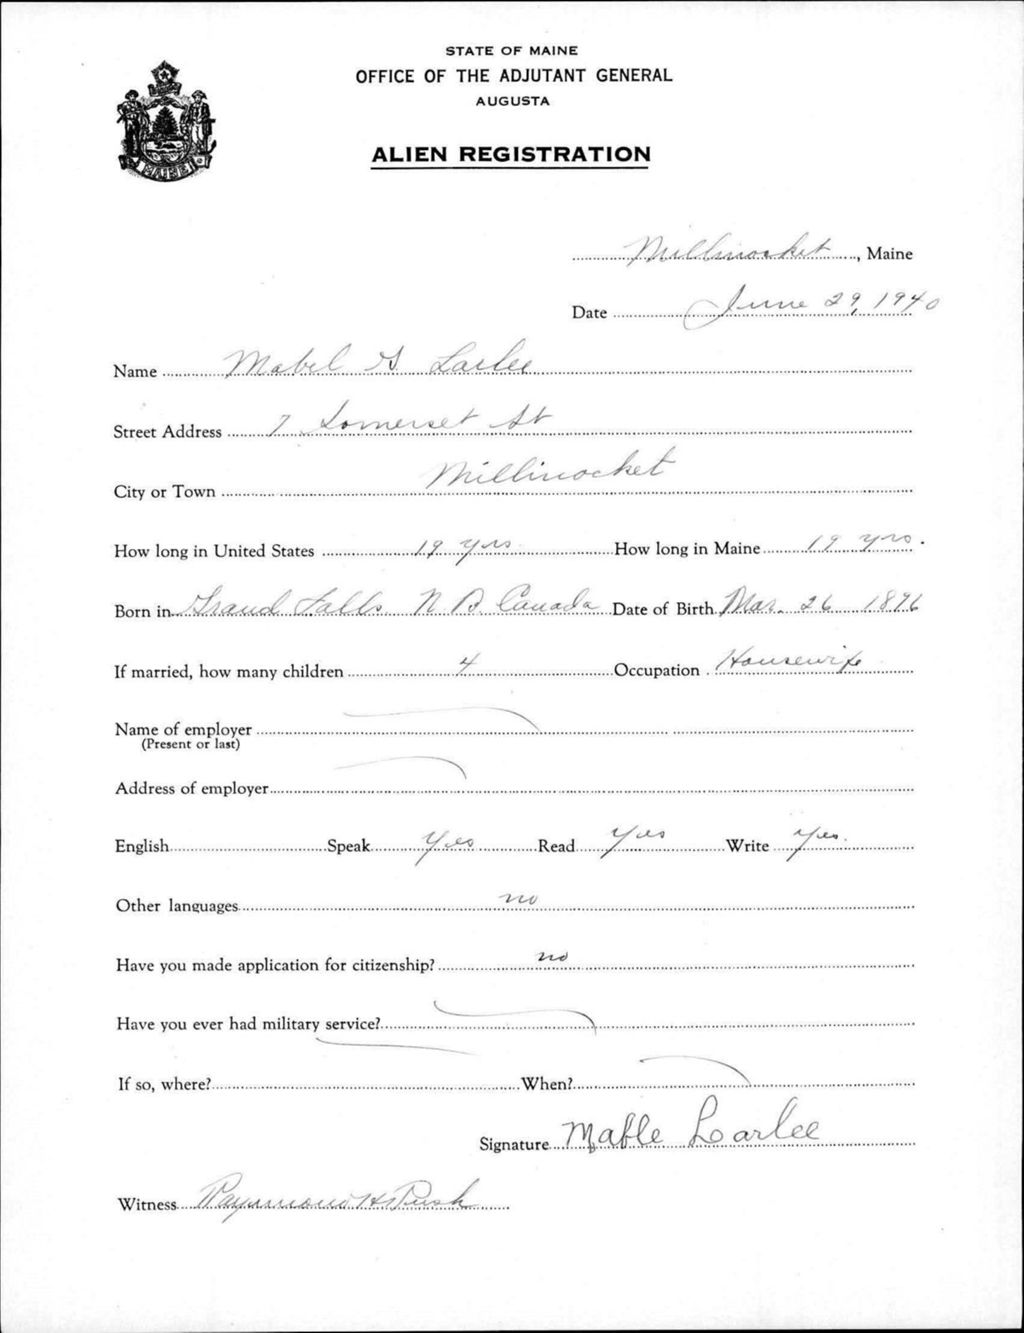 STATE OF MAINE
OFFICE OF THE ADJUTANT GENERAL
AUGUSTA
ALIEN REGISTRATION
MAINE
Millinocket, Maine
Date June 29, 1940
Name Mabel G Larlee
Street Address 7 Somerset St
City or Town Millinocket
How long in United States 19 yrs How long in Maine 19 yrs.
Born in Grand Falls N B Canada Date of Birth Mar. 26 1896
If married, how many children 4 Occupation Housewife
Name of employer
(Present or last)
Address of employer
English Speak Yes Read Yes Write Yes.
Other languages no
Have you made application for citizenship? no
Have you ever had military service?
If so, where? When?
Signature Mable Larlee
Witness Raymond H Rush